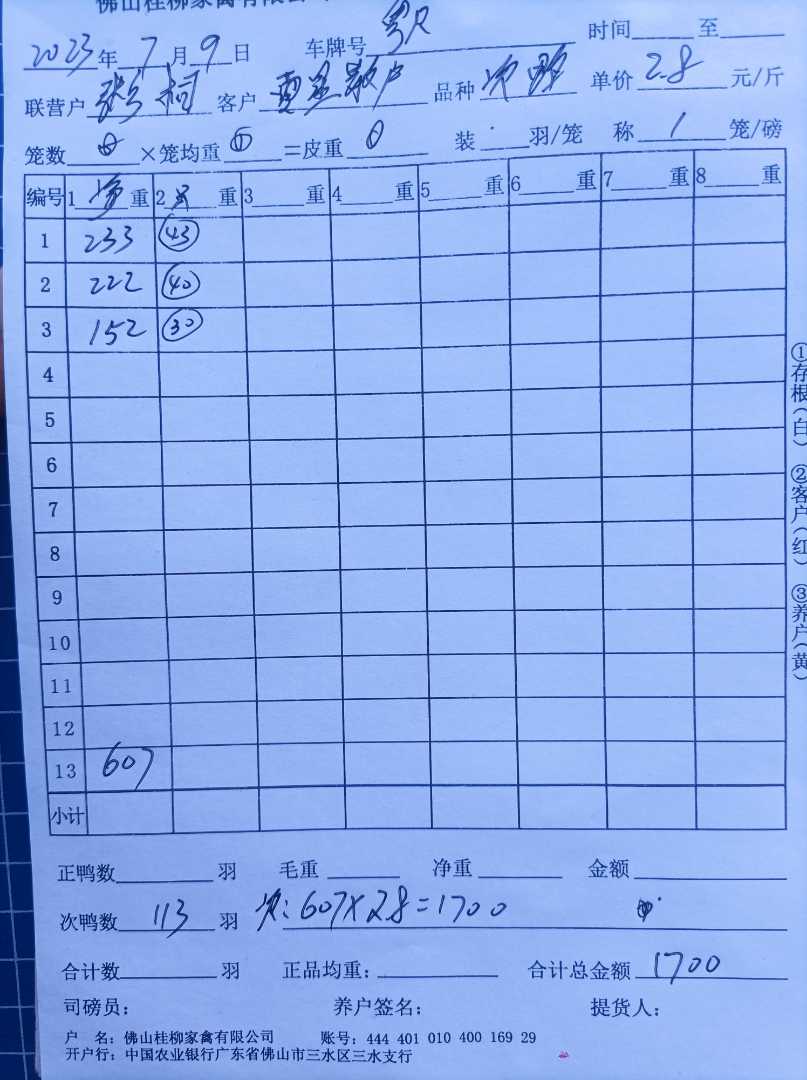 佛山桂柳家禽有限公司
2023年7月9日 车牌号 时间 至
联营户 客户 散户 品种 次鸭 单价 2.8 元/斤
笼数 0 ×笼均重 0 =皮重 0 装 羽/笼 称 1 笼/磅
编号 1 净 重 2 只 重 3 重 4 重 5 重 6 重 7 重 8 重
1 233 43
2 222 40
3 152 30
4
5
6
7
8
9
10
11
12
13 607
小计
正鸭数 羽 毛重 净重 金额
次鸭数 113 羽 次:607×2.8=1700
合计数 羽 正品均重: 合计总金额 1700
司磅员: 养户签名: 提货人:
户 名:佛山桂柳家禽有限公司 账号:444 401 010 400 169 29
开户行:中国农业银行广东省佛山市三水区三水支行
①存根(白) ②客户(红) ③养户(黄)